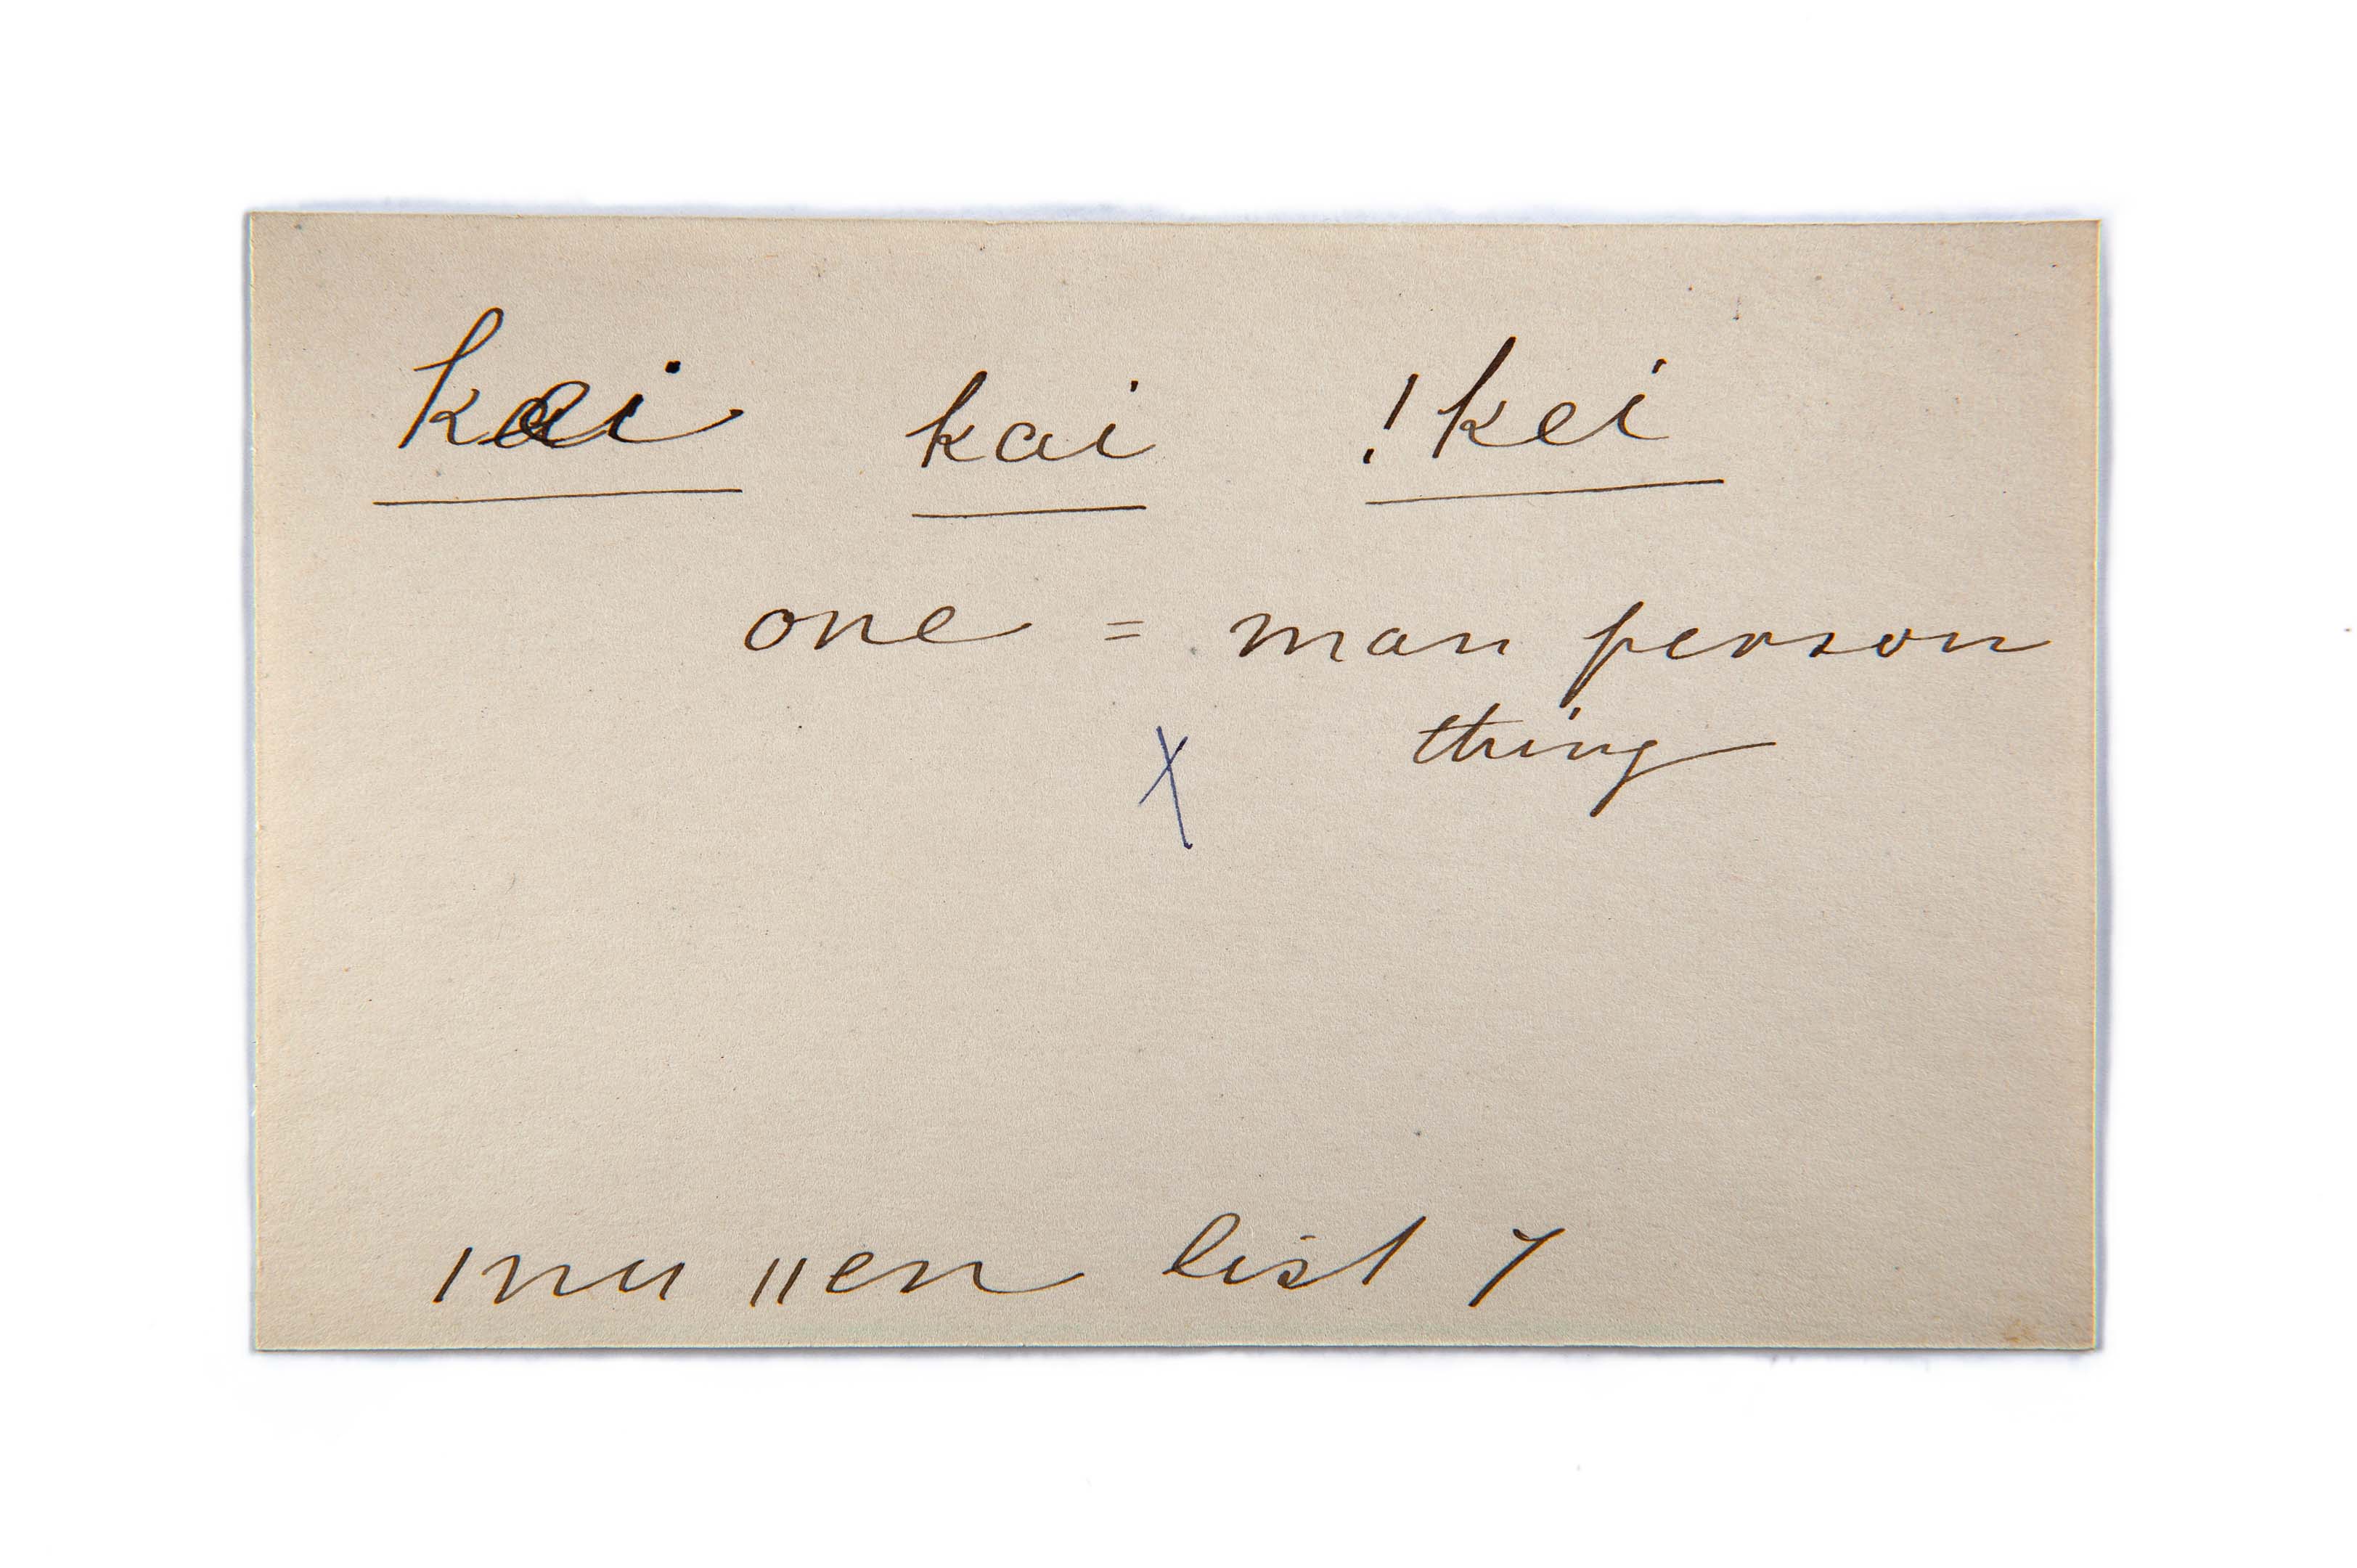 kai kai !kei
one = man person
thing
X
ǀnu ǁen list 7